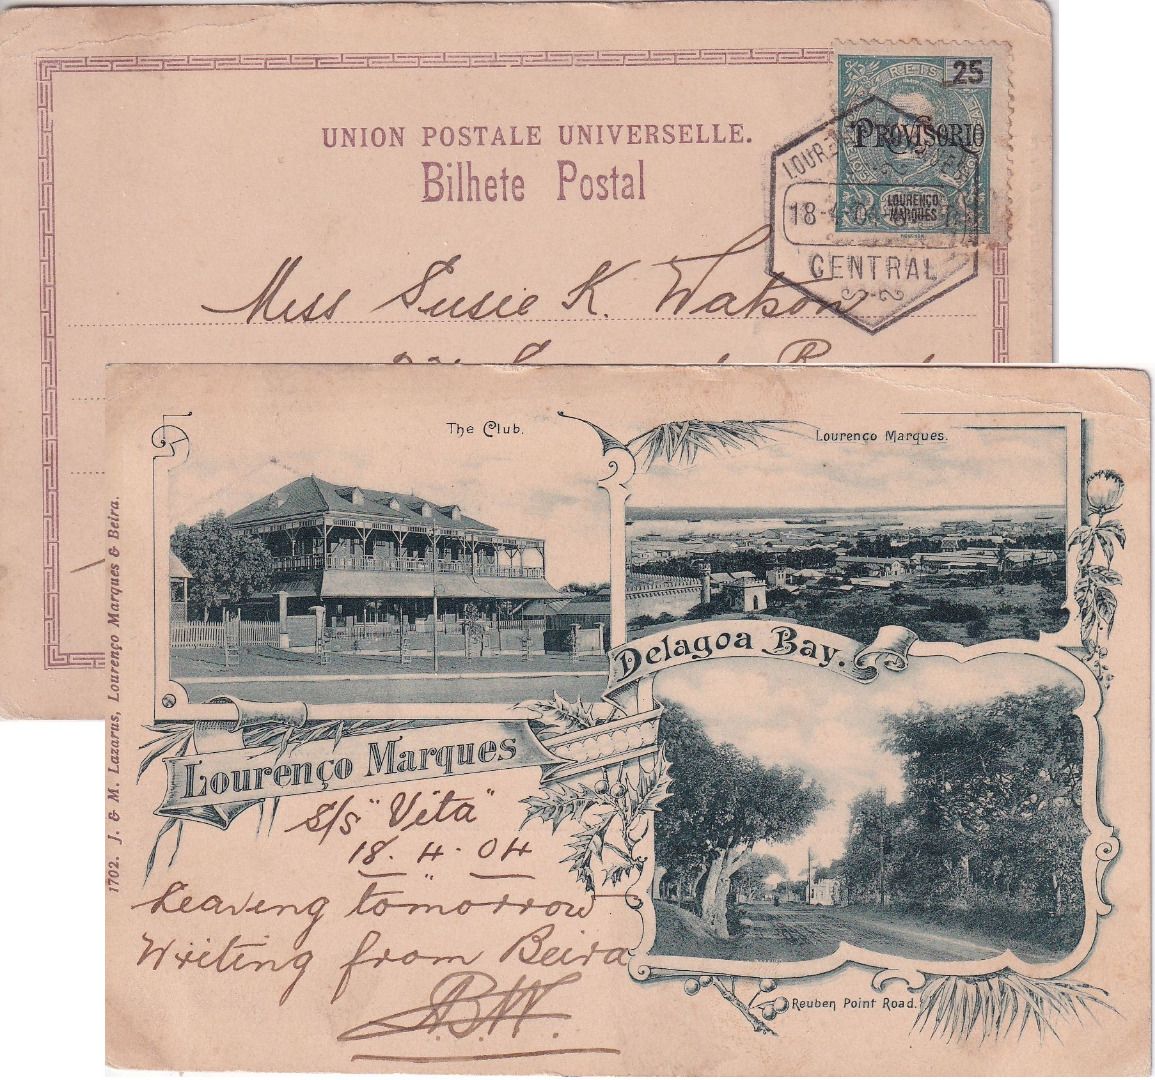 UNION POSTALE UNIVERSELLE.
Bilhete Postal
REIS
25
PROVISORIO
LOURENÇO
MARQUES
18-4-04
CENTRAL
Miss Susie K. Watson
The Club.
Lourenco Marques.
Delagoa Bay.
Lourenço Marques
S/S "Vita"
18. 4. 04
Leaving tomorrow
Writing from Beira
A.B.W.
Reuben Point Road.
1702. J. & M. Lazarus, Lourenço Marques & Beira.